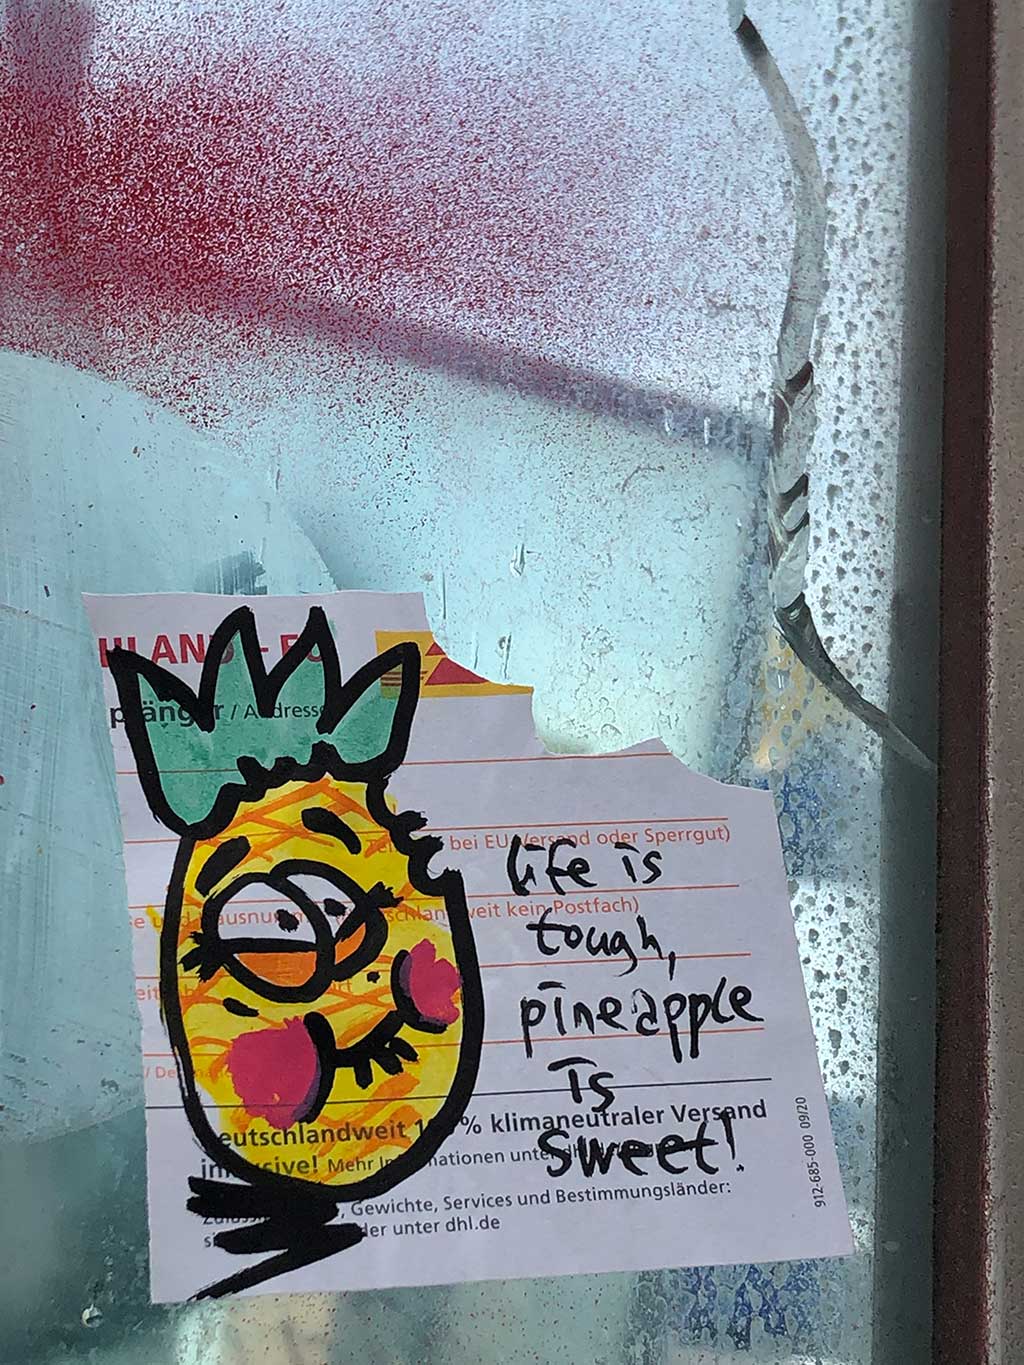 HLAND - EU
pfänger / Adresse
bei EU-Versand oder Sperrgut)
e und Hausnummer
schlandweit kein Postfach)
Life is
tough,
pineapple
is
sweet!
eutschlandweit 100% klimaneutraler Versand
inklusive! Mehr Informationen unter
, Gewichte, Services und Bestimmungsländer:
der unter dhl.de
912-685-000 09/20